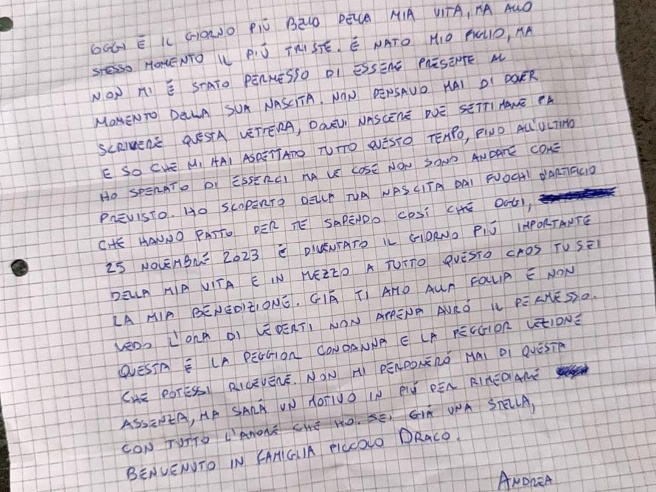 OGGI È IL GIORNO PIÙ BELLO DELLA MIA VITA, MA ALLO
STESSO MOMENTO IL PIÙ TRISTE. È NATO MIO FIGLIO, MA
NON MI È STATO PERMESSO DI ESSERE PRESENTE AL
MOMENTO DELLA SUA NASCITA. NON PENSAVO MAI DI DOVER
SCRIVERE QUESTA LETTERA, DOVEVI NASCERE DUE SETTIMANE FA
E SO CHE MI HAI ASPETTATO TUTTO QUESTO TEMPO, FINO ALL'ULTIMO
HO SPERATO DI ESSERCI MA LE COSE NON SONO ANDATE COME
PREVISTO. HO SCOPERTO DELLA TUA NASCITA DAI FUOCHI D'ARTIFICIO
CHE HANNO FATTO PER TE SAPENDO COSÍ CHE OGGI,
25 NOVEMBRE 2023 È DIVENTATO IL GIORNO PIÙ IMPORTANTE
DELLA MIA VITA E IN MEZZO A TUTTO QUESTO CAOS TU SEI
LA MIA BENEDIZIONE. GIÀ TI AMO ALLA FOLLIA E NON
VEDO L'ORA DI VEDERTI NON APPENA AVRÓ IL PERMESSO.
QUESTA È LA PEGGIOR CONDANNA E LA PEGGIOR LEZIONE
CHE POTESSI RICEVERE. NON MI PERDONERÓ MAI DI QUESTA
ASSENZA, MA SARÁ UN MOTIVO IN PIÙ PER RIMEDIARE
CON TUTTO L'AMORE CHE HO. SEI GIÁ UNA STELLA,
BENVENUTO IN FAMIGLIA PICCOLO DRACO.
ANDREA